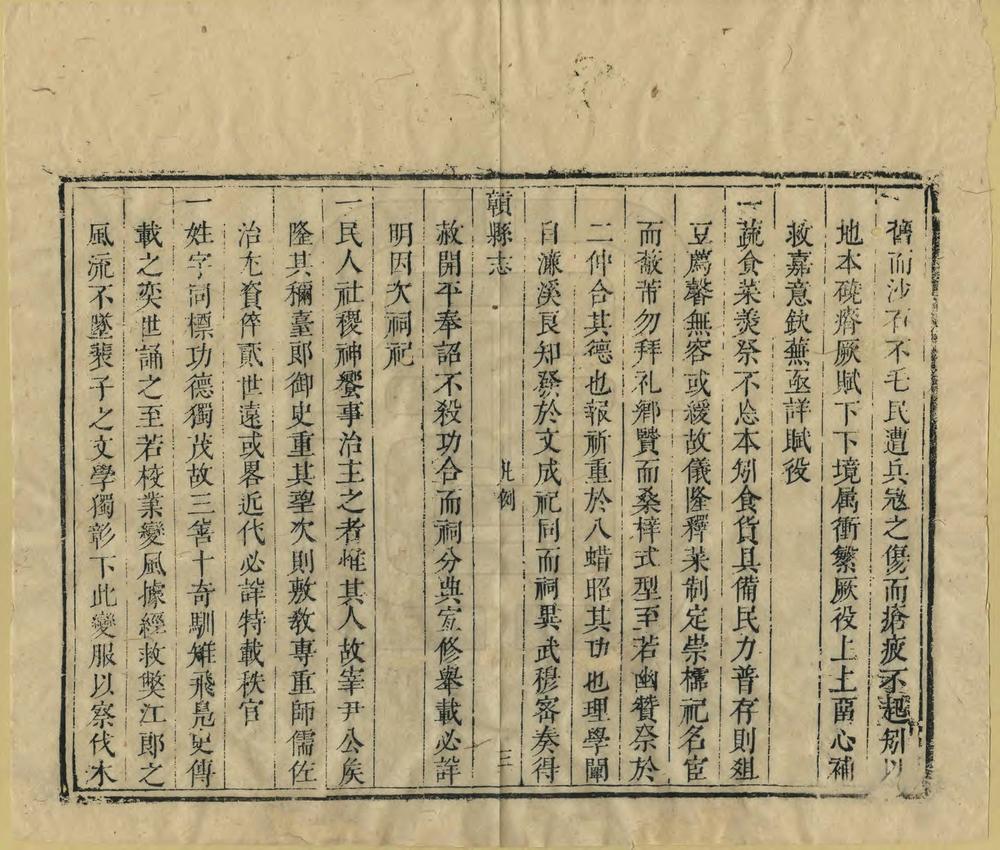 舊而沙石不毛民遭兵寇之傷而瘡疲不起矧以
地本磽瘠厥賦下下境属衝繁厥役上上畱心補
救嘉意欽蕪亟詳賦役
一蔬食菜羮祭不忘本矧食貨具備民力普存則俎
豆薦馨無容或緩故儀隆釋菜制定崇檽祀名宦
而蔽芾勿拜礼鄕賢而桑梓式型至若幽贊祭於
二仲合其德也報祈重於八蜡昭其功也理學闡
自濂溪良知發於文成祀同而祠異武穆密奏得
贑縣志 凡例 三
赦開平奉詔不殺功合而祠分典宜修舉載必詳
明因次祠祀
一民人社稷神饗事治主之者惟其人故宰尹公矦
隆其穪臺郎御史重其璽次則敷敎專重師儒佐
治尢資倅貳世遠或畧近代必詳特載秩官
一姓字同標功德獨茂故三善十奇馴雉飛鳧史傳
載之奕世誦之至若校業變風據經救獘江郎之
風流不墜裴子之文學獨彰下此變服以察伐木